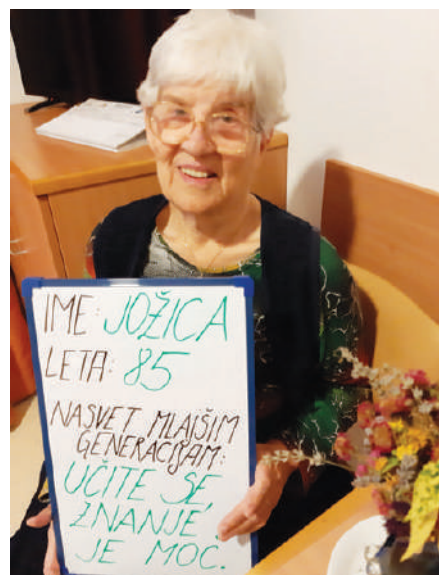 IME: JOŽICA
LETA: 85
NASVET MLAJŠIM
GENERACIJAM:
UČITE SE,
ZNANJE
JE MOČ.